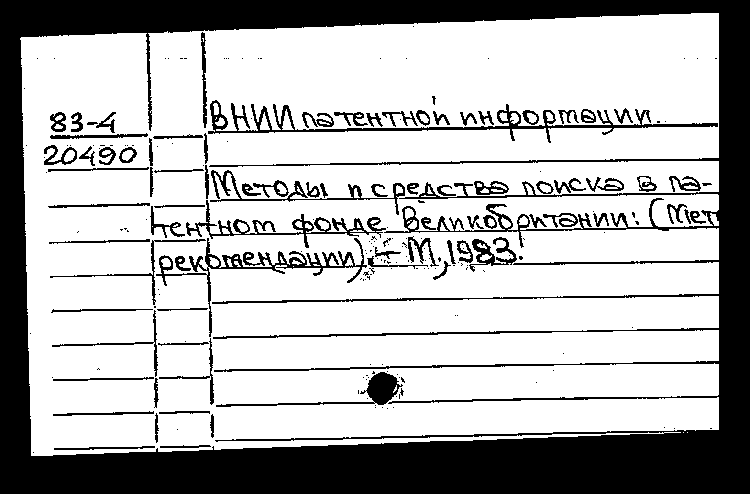 83-4 ВНИИ патентной информации.
20490
Методы и средства поиска в па-
тентном фонде Великобритании: (Мет
рекомендации). — М., 1983.